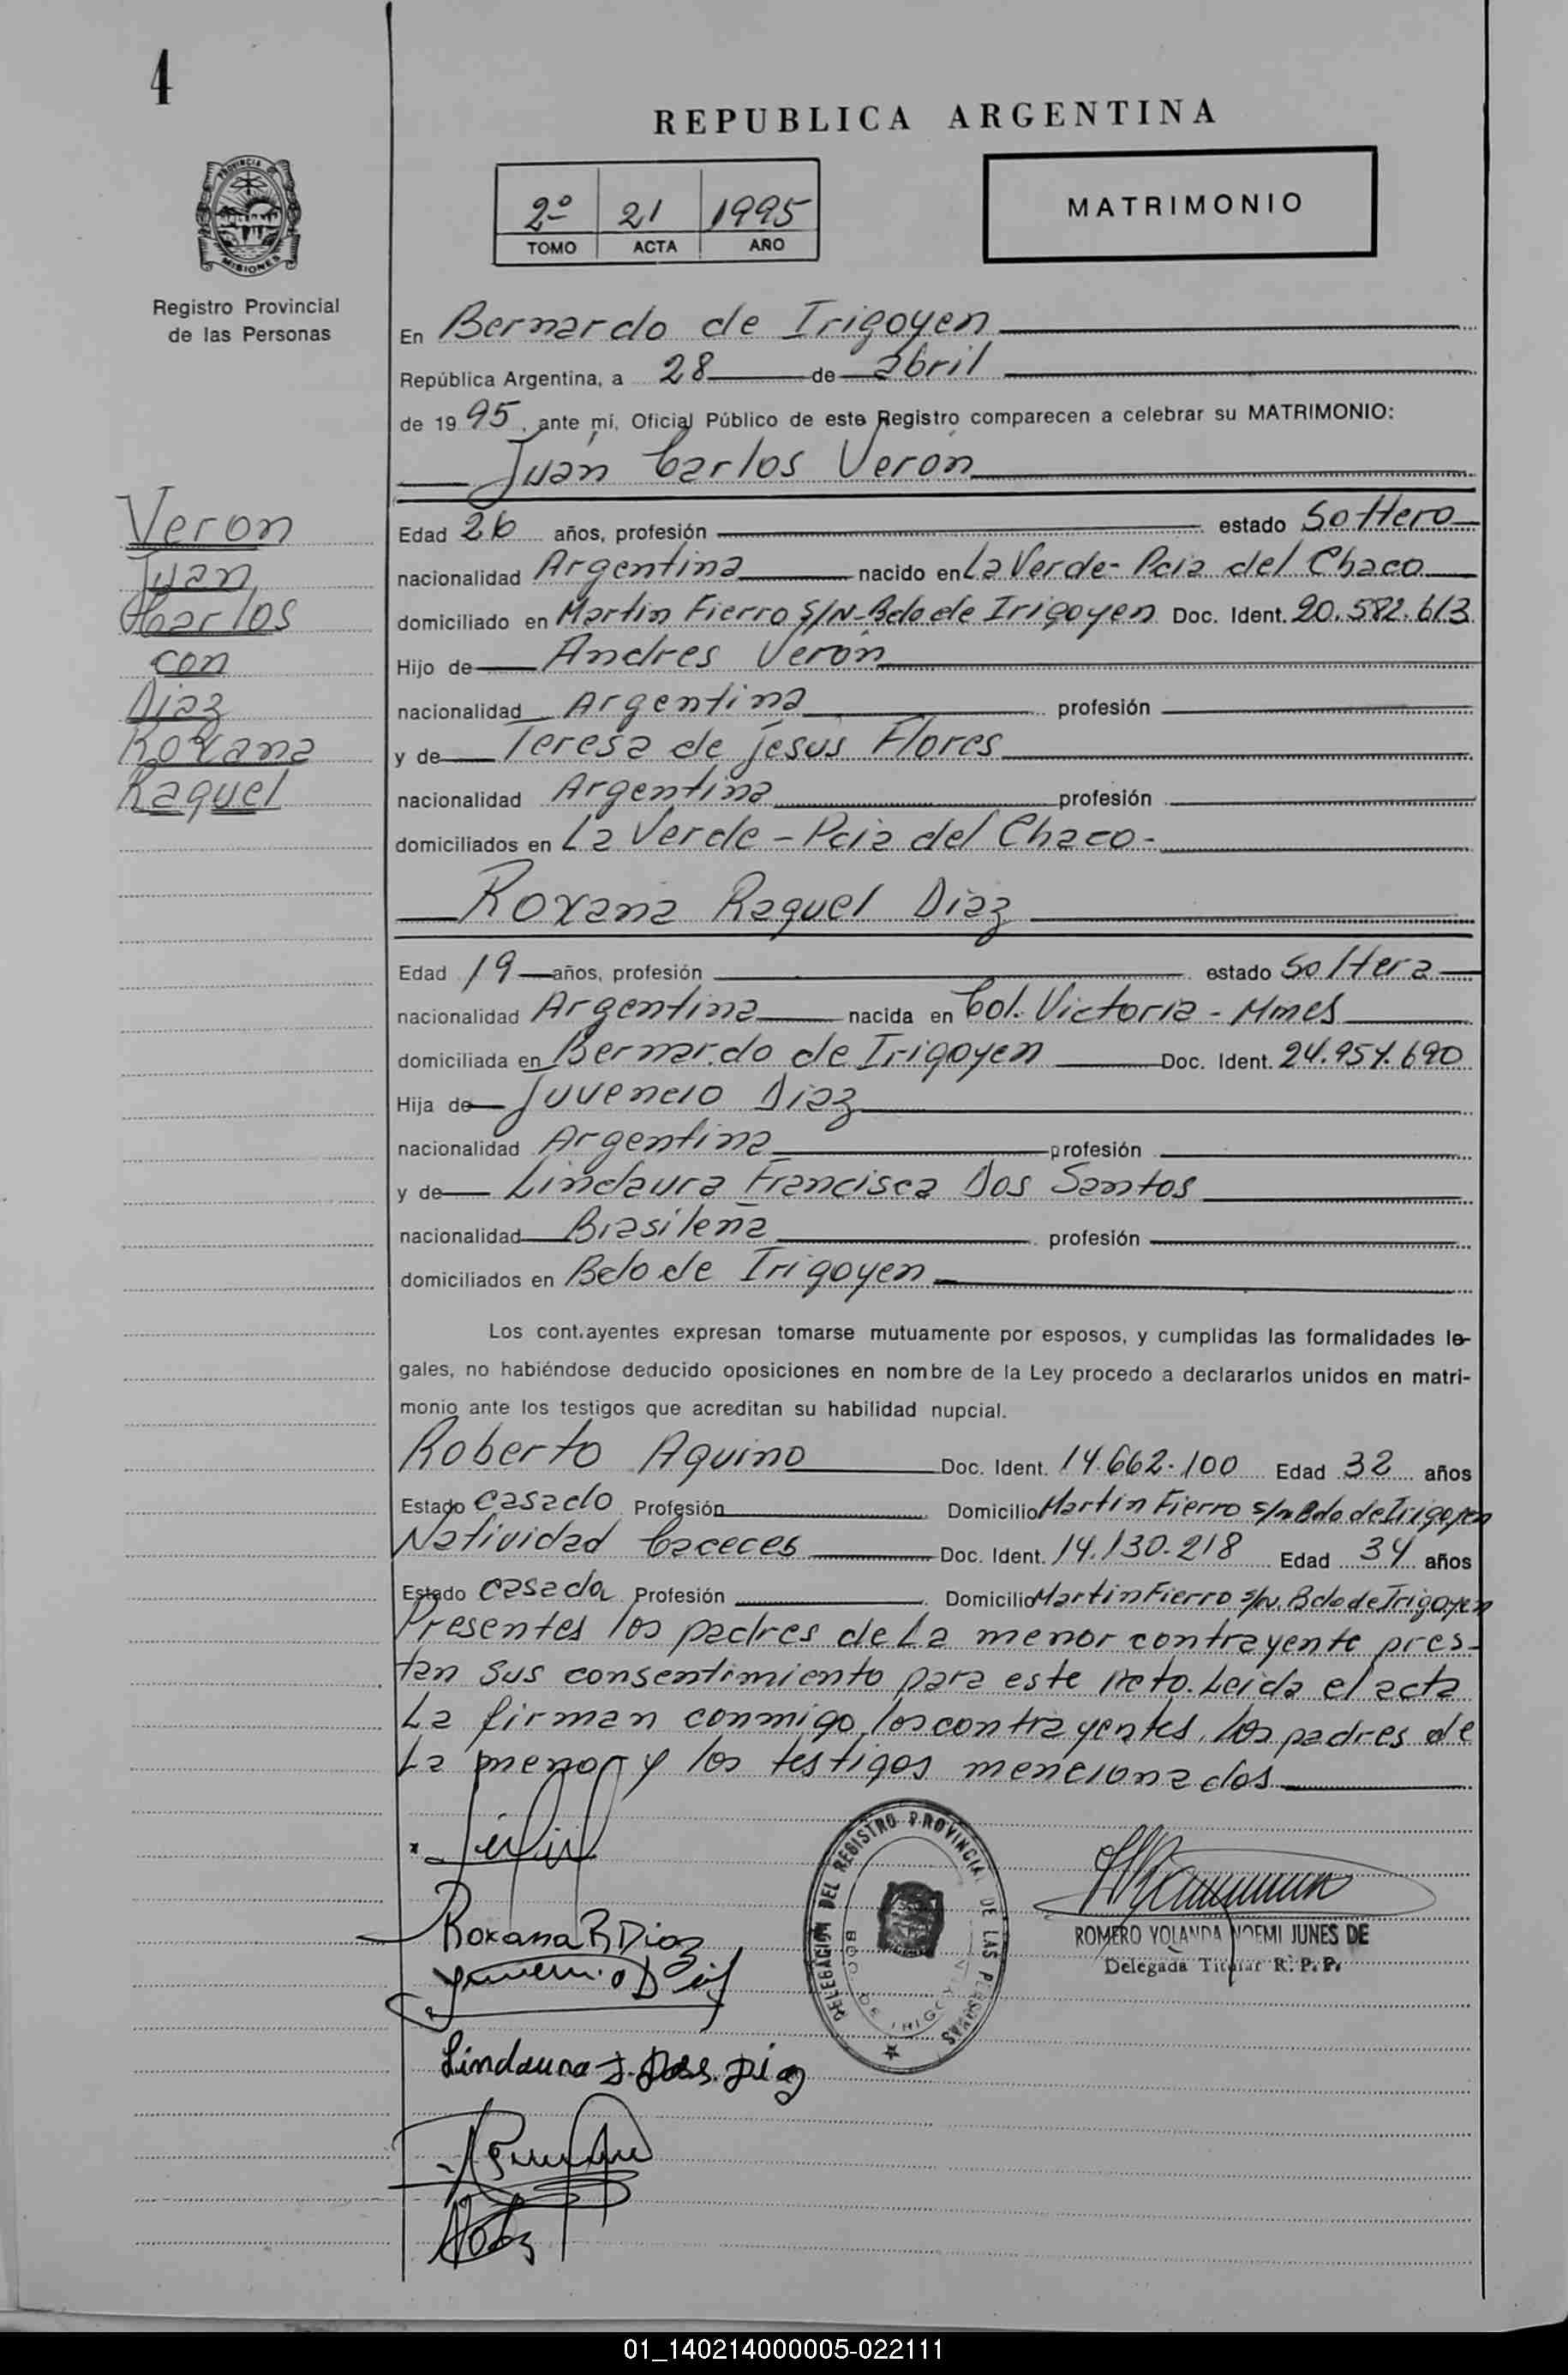 4
REPUBLICA ARGENTINA
2º 21 1995
TOMO ACTA AÑO
MATRIMONIO
PROVINCIA DE
MISIONES
Registro Provincial
de las Personas
En Bernardo de Irigoyen
República Argentina, a 28 de abril
de 1995, ante mí, Oficial Público de este Registro comparecen a celebrar su MATRIMONIO:
Juan Carlos Verón
Veron
Juan
Carlos
con
Diaz
Roxana
Raquel
Edad 26 años, profesión estado Soltero
nacionalidad Argentina nacido en La Verde - Pcia del Chaco
domiciliado en Martin Fierro S/N - Bdo de Irigoyen Doc. Ident. 20.582.613
Hijo de Andres Verón
nacionalidad Argentina profesión
y de Teresa de Jesús Flores
nacionalidad Argentina profesión
domiciliados en La Verde - Pcia del Chaco -
Roxana Raquel Diaz
Edad 19 años, profesión estado Soltera
nacionalidad Argentina nacida en Col. Victoria - Mnes
domiciliada en Bernardo de Irigoyen Doc. Ident. 24.954.690
Hija de Juvencio Diaz
nacionalidad Argentina profesión
y de Lindaura Francisca Dos Santos
nacionalidad Brasileña profesión
domiciliados en Bdo de Irigoyen
Los contrayentes expresan tomarse mutuamente por esposos, y cumplidas las formalidades le-
gales, no habiéndose deducido oposiciones en nombre de la Ley procedo a declararlos unidos en matri-
monio ante los testigos que acreditan su habilidad nupcial.
Roberto Aquino Doc. Ident. 14.662.100 Edad 32 años
Estado Casado Profesión Domicilio Martin Fierro s/n Bdo de Irigoyen
Natividad Caceces Doc. Ident. 14.130.218 Edad 34 años
Estado Casada Profesión Domicilio Martin Fierro s/n. Bdo de Irigoyen
Presentes los padres de La menor contrayente pres-
tan sus consentimiento para este Acto. Leida el acta
La firman conmigo, los contrayentes, los padres de
La menor y los testigos mencionados
Roxana R Diaz
Juvencio Diaz
Lindaura F. Dos S. Diaz
DELEGACION DEL REGISTRO PROVINCIAL DE LAS PERSONAS
BDO. DE IRIGOYEN
ROMERO YOLANDA NOEMI JUNES DE
Delegada Titular R. P. P.
01_140214000005-022111